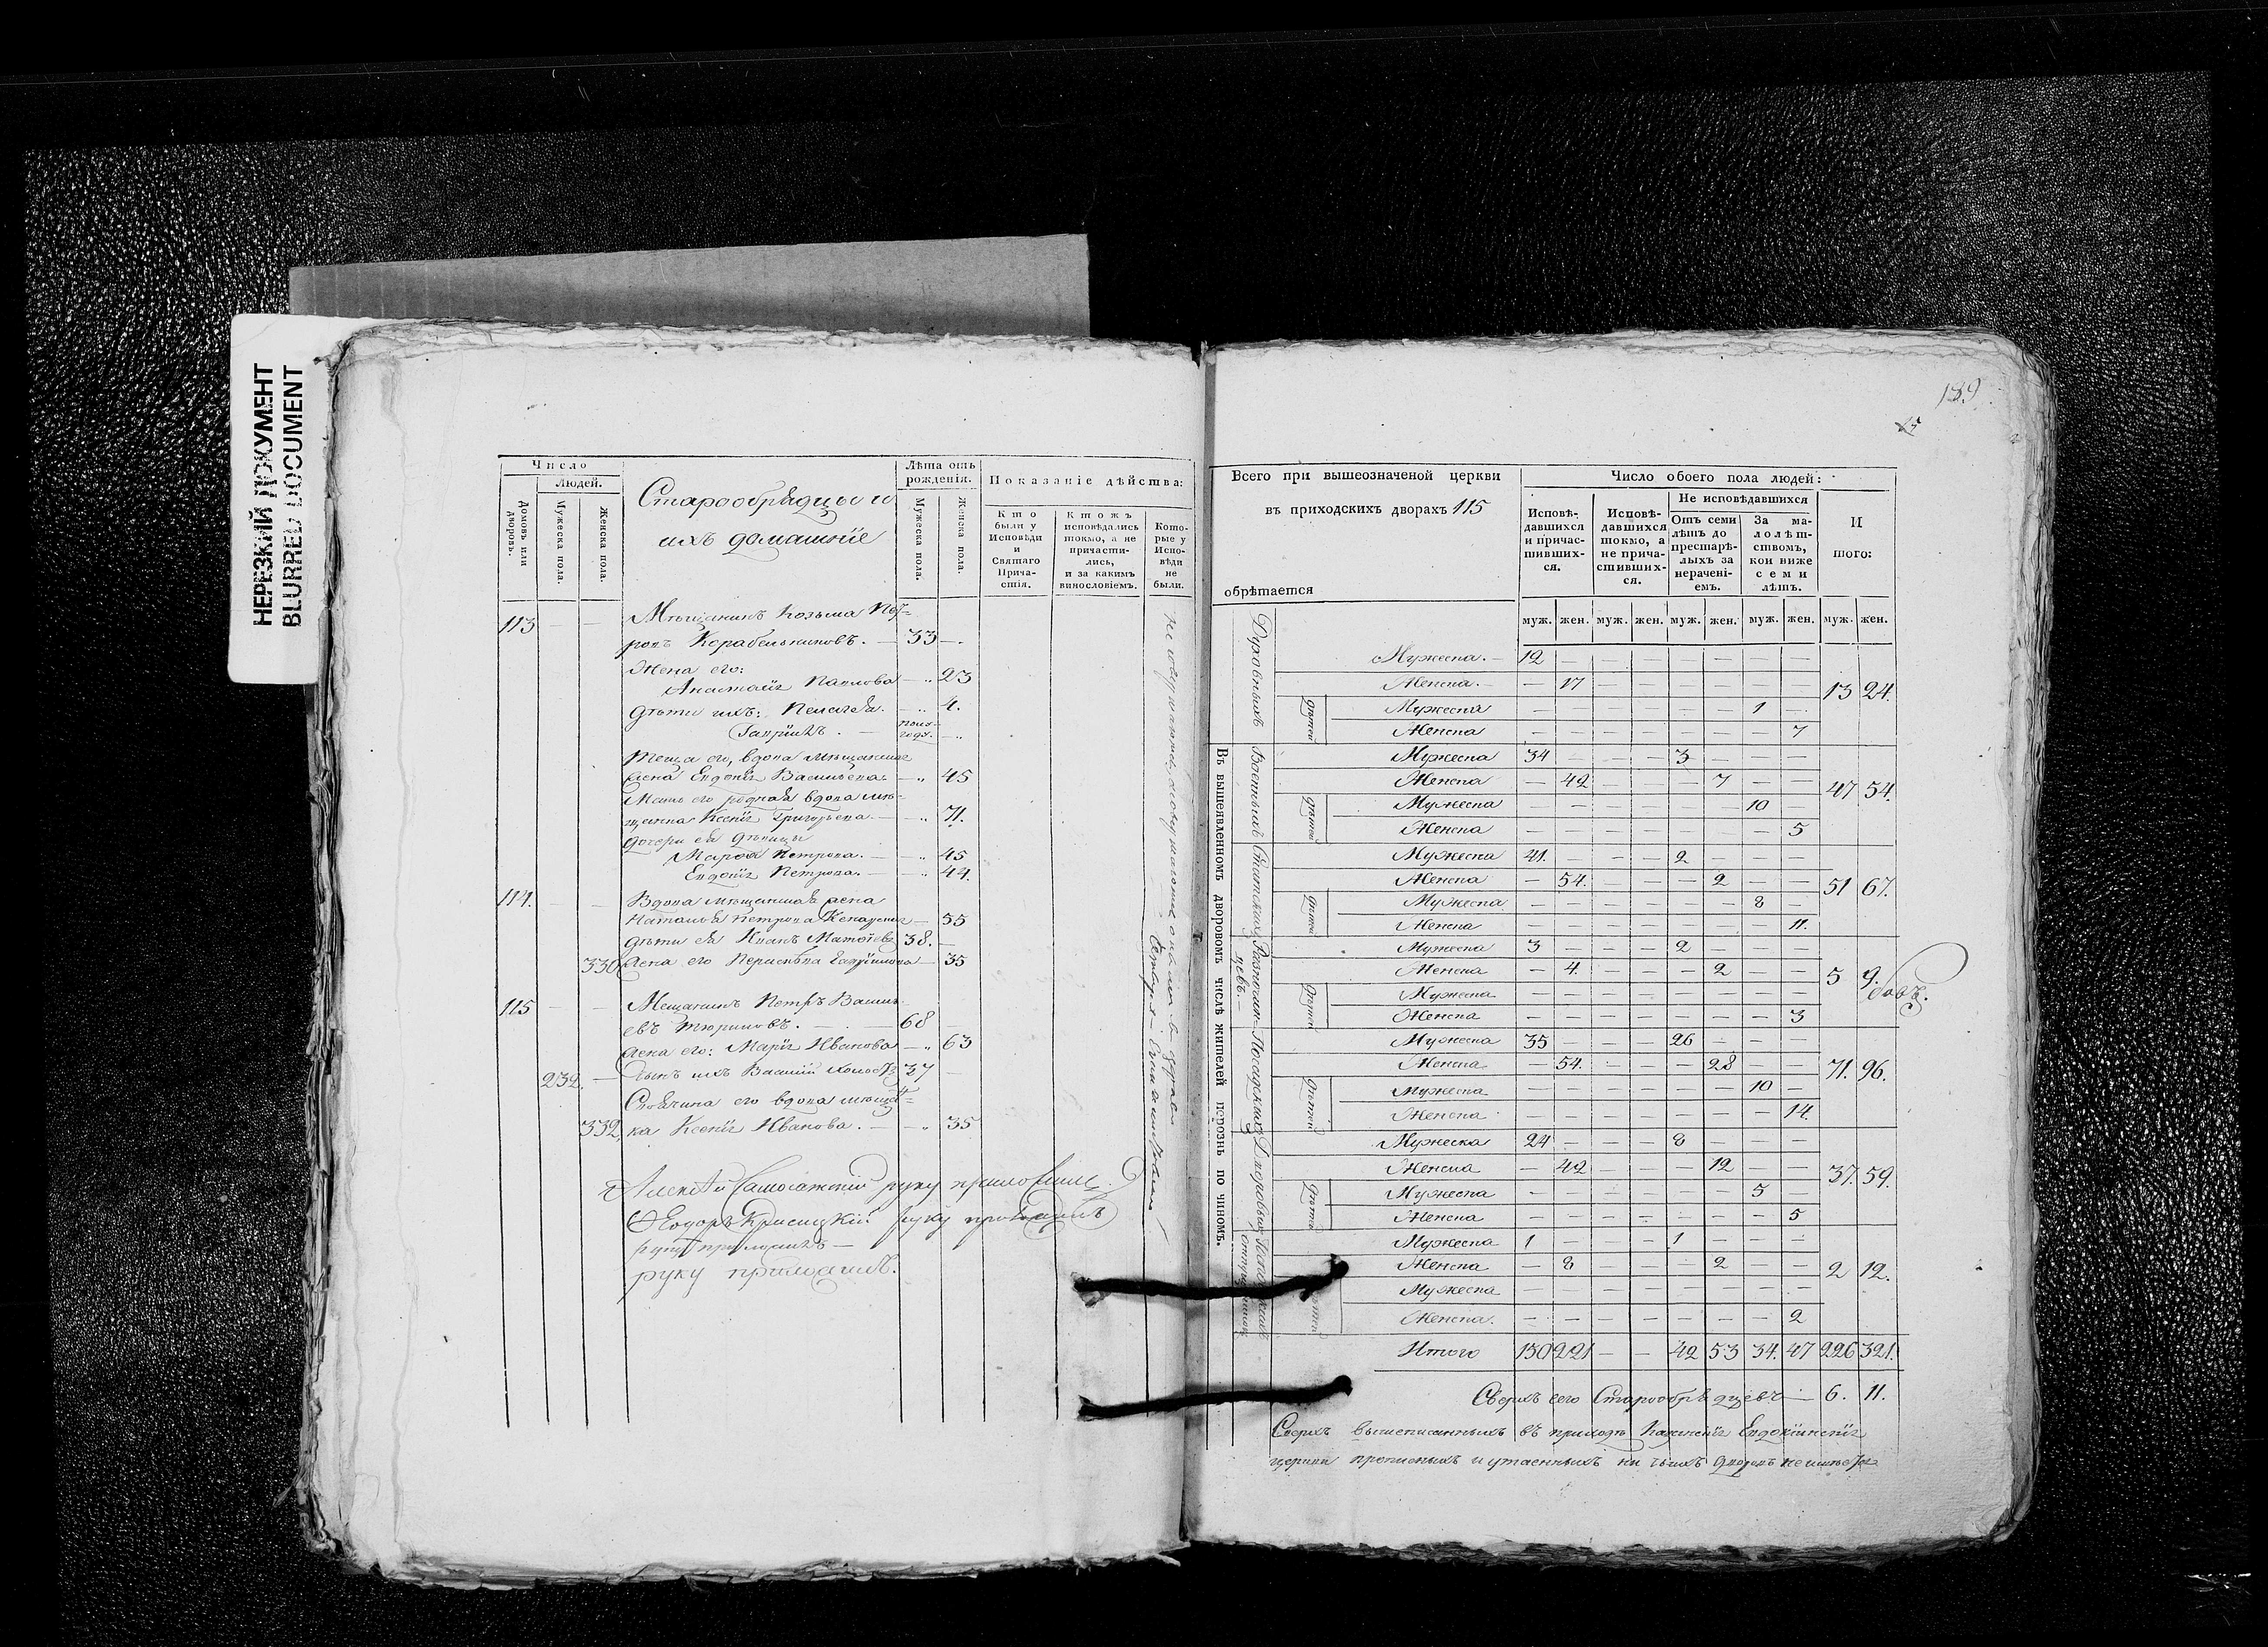 НЕРЕЗКИЙ ДОКУМЕНТ
BLURRED DOCUMENT
Число
Людей.
Домовъ или дворовъ.
Мужеска пола.
Женска пола.
Старообрядцы и
ихъ домашніе
Лѣта отъ рожденія.
Мужеска пола.
Женска пола.
Показаніе дѣйства:
Кто были у Исповѣди и Святаго Причастія.
Ктожъ исповѣдались токмо, а не причастились, и за какимъ винословіемъ.
Которые у Исповѣди не были.
113 — — Мѣщанинъ Козьма Пет=
ровъ Корабельниковъ. — 33 —.
Жена его:
Анастасія Павлова — „ 23
Дѣти ихъ: Пелагея. — „ 4.
Гавріилъ. — полу-году. — „
теща его, вдова мѣщанская
жена Евдокія Васильева. — „ 45
Мать его родная вдова мѣ-
щанка Ксенія Григорьева. — „ 71.
дочери ея дѣвицы
Марѳа Петрова. — „ 45
Евдокія Петрова. — „ 44.
114. — — Вдова мѣщанская жена
Наталья Петрова — 55
дѣти ея Иванъ Матѳіевъ 38. —
330 жена его Парасковья — 35
115 — — Мещанинъ Петръ Василь
евъ Тюриновъ. — 68 —
жена его: Марія Иванова — „ 63
232. — Сынъ ихъ Василій холостъ 37 —
его вдова мѣщан=
332. ка Ксенія Иванова. — „ 35
руку приложилъ.
Ѳеодоръ руку приложилъ
руку приложилъ —
руку приложилъ.
139
25
Всего при вышеозначеной церкви
въ приходскихъ дворахъ 115
обрѣтается
Число обоего пола людей:
Исповѣдавшихся и причастившихся.
Исповѣдавшихся токмо, а не причастившихся.
Не исповѣдавшихся
Отъ семи лѣтъ до престарѣлыхъ за нераченіемъ.
За малолѣтствомъ, кои ниже семи лѣтъ.
И того:
муж. жен. муж. жен. муж. жен. муж. жен. муж. жен.
Въ вышеявленномъ дворовомъ числѣ жителей порознь по чиномъ.
Духовныхъ
Мужеска. — 12 — — — — — — —
Женска. — — 17 — — — — — —
13 24.
дѣтей
Мужеска — — — — — — 1 —
Женска — — — — — — — 7
Военныхъ
Мужеска 34 — — — 3 — — —
Женска — 42 — — — 7 — —
47 54.
дѣтей
Мужеска — — — — — — 10 —
Женска — — — — — — — 5
Статскихъ
Мужеска 41. — — — 2 — — —
Женска — 54. — — — 2 — —
51 67.
дѣтей
Мужеска — — — — — — 8 —
Женска — — — — — — — 11.
Разночинцевъ. —
Мужеска 3 — — — 2 — — —
Женска — 4. — — — 2 — —
5 9.
дѣтей
Мужеска — — — — — — — —
Женска — — — — — — — 3
Посадскихъ
Мужеска 35 — — — 26 — — —
Женска — 54. — — — 28 — —
71. 96.
дѣтей
Мужеска — — — — — — 10 —
Женска — — — — — — — 14.
Дворовыхъ
Мужеска 24 — — — 8 — — —
Женска — 42 — — — 12 — —
37. 59.
дѣтей
Мужеска — — — — — — 5 —
Женска — — — — — — — 5
Мужеска 1 — — — 1 — — —
Женска — 8 — — — 2 — —
2 12.
дѣтей
Мужеска — — — — — — — —
Женска. — — — — — — — 2
Итого 150 221 — — 42 53 34. 47 226 321.
Сверхъ сего Старообрядцевъ — 6. 11.
Сверхъ вышеписанныхъ въ приходѣ Евдокіинскія
церкви прописныхъ и утаенныхъ ни чьихъ дворовъ не имѣется